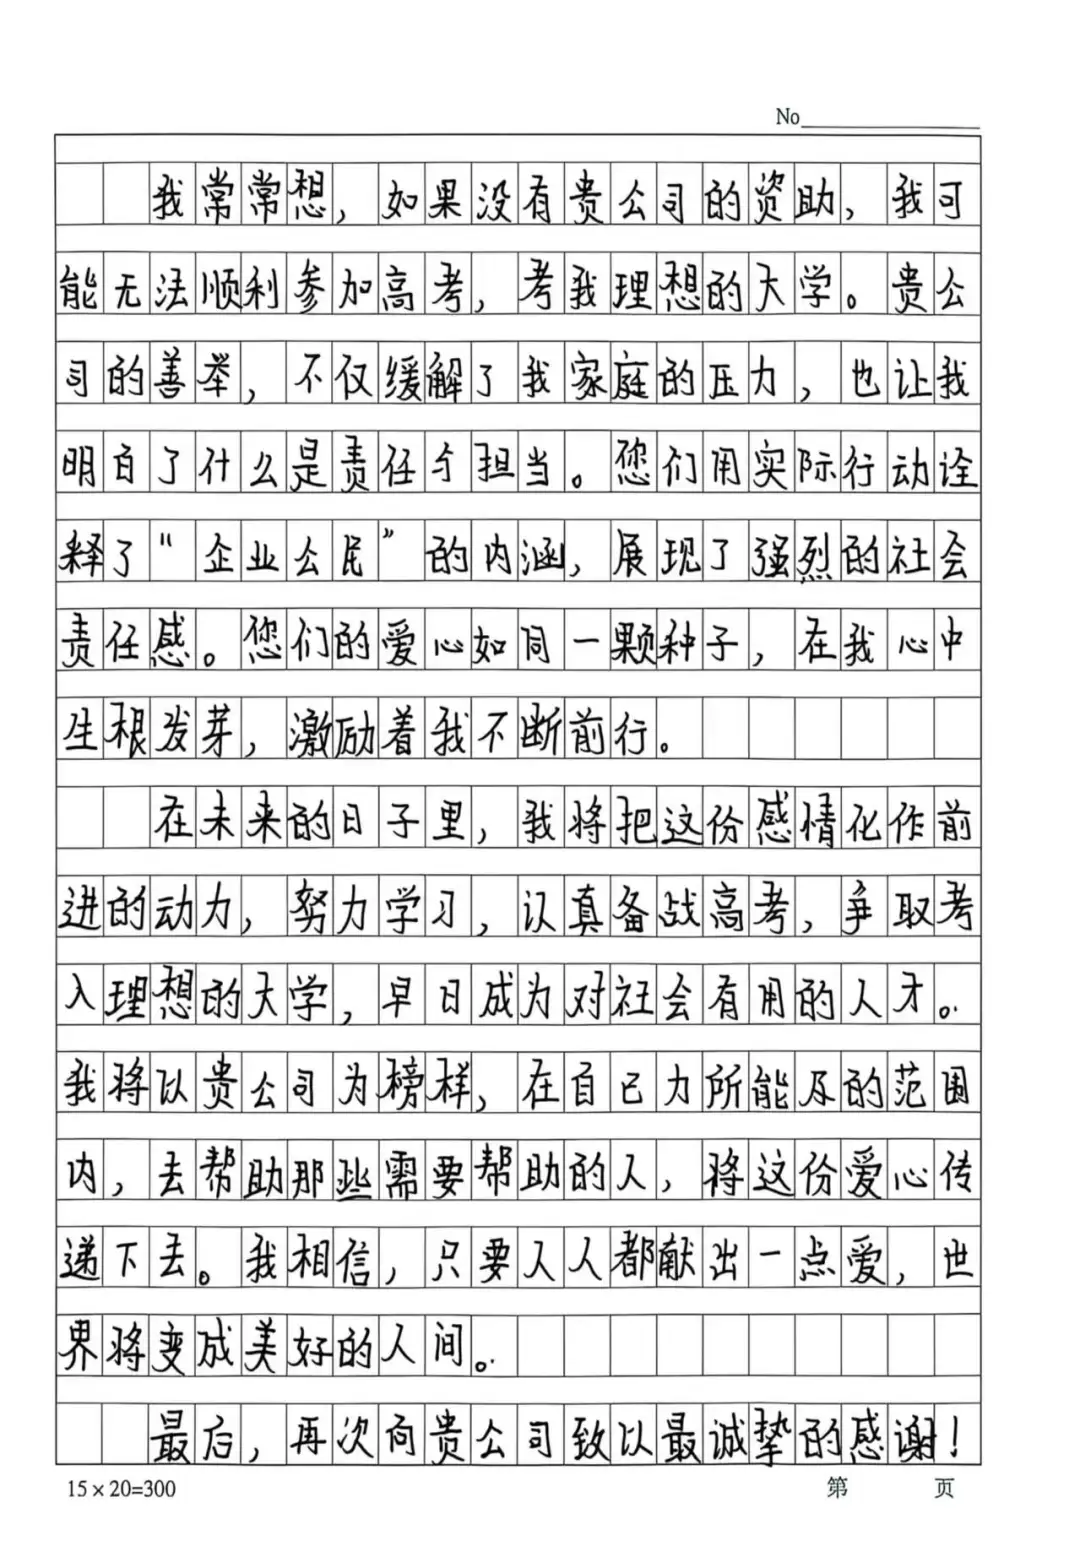 No
我常常想，如果没有贵公司的资助，我可
能无法顺利参加高考，考我理想的大学。贵公
司的善举，不仅缓解了我家庭的压力，也让我
明白了什么是责任与担当。您们用实际行动诠
释了“企业公民”的内涵，展现了强烈的社会
责任感。您们的爱心如同一颗种子，在我心中
生根发芽，激励着我不断前行。
在未来的日子里，我将把这份感情化作前
进的动力，努力学习，认真备战高考，争取考
入理想的大学，早日成为对社会有用的人才。
我将以贵公司为榜样，在自己力所能及的范围
内，去帮助那些需要帮助的人，将这份爱心传
递下去。我相信，只要人人都献出一点爱，世
界将变成美好的人间。
最后，再次向贵公司致以最诚挚的感谢！
15×20=300 第 页